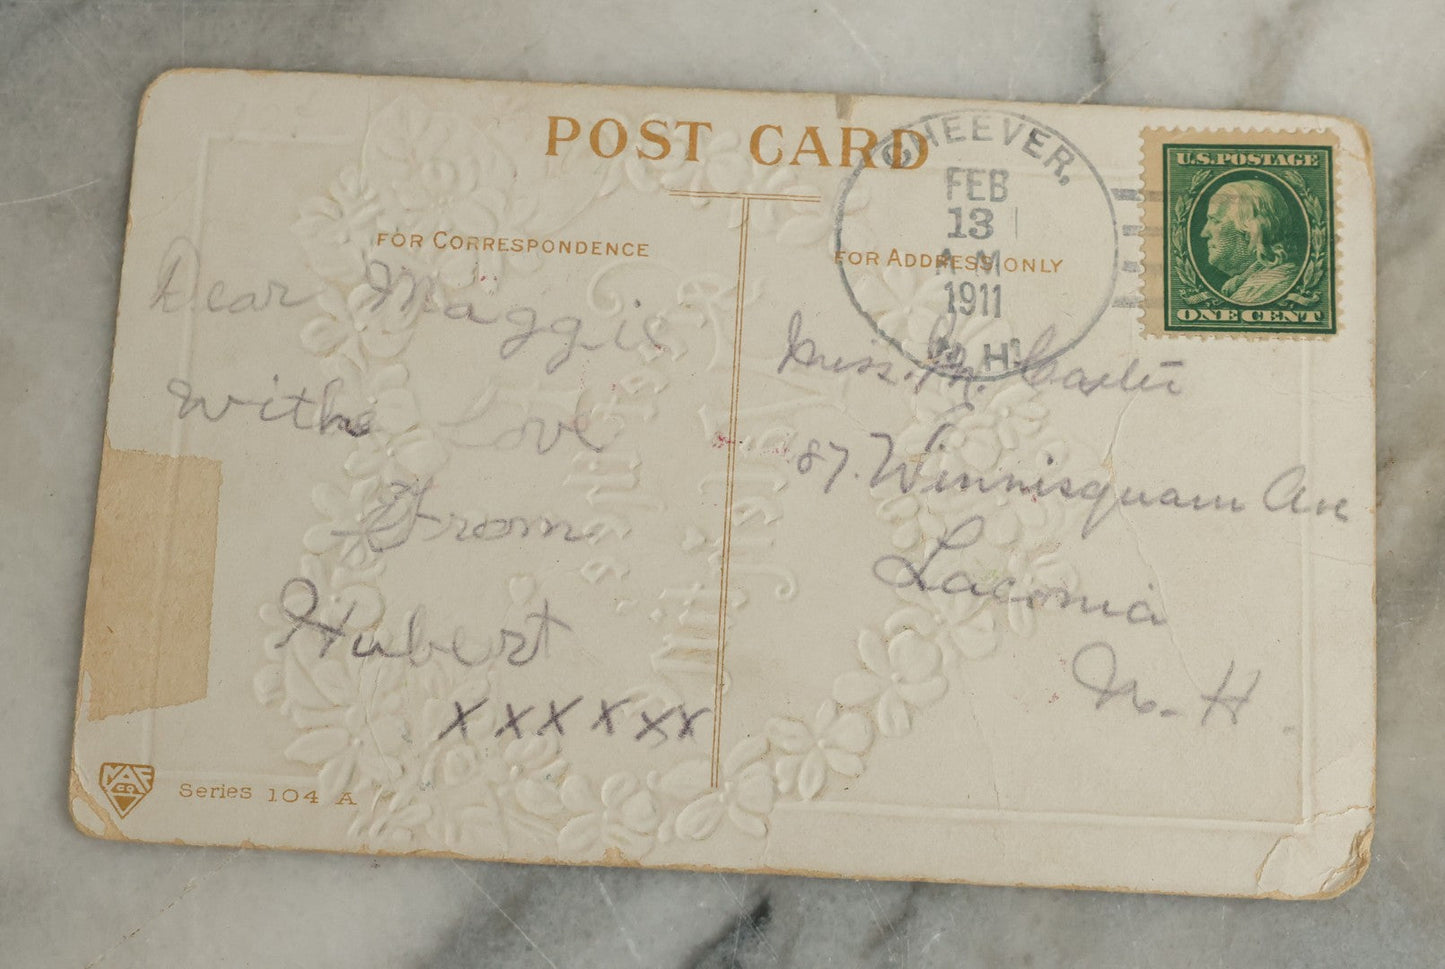 POST CARD
CHEEVER,
FEB
13
A.M.
1911
N.H.
U.S. POSTAGE
ONE CENT
FOR CORRESPONDENCE
FOR ADDRESS ONLY
Dear Maggie
withe Love
From
Hubert
x x x x x x
Miss. M.
87. Winnisquam Ave
Laconia
N. H.
Series 104 A